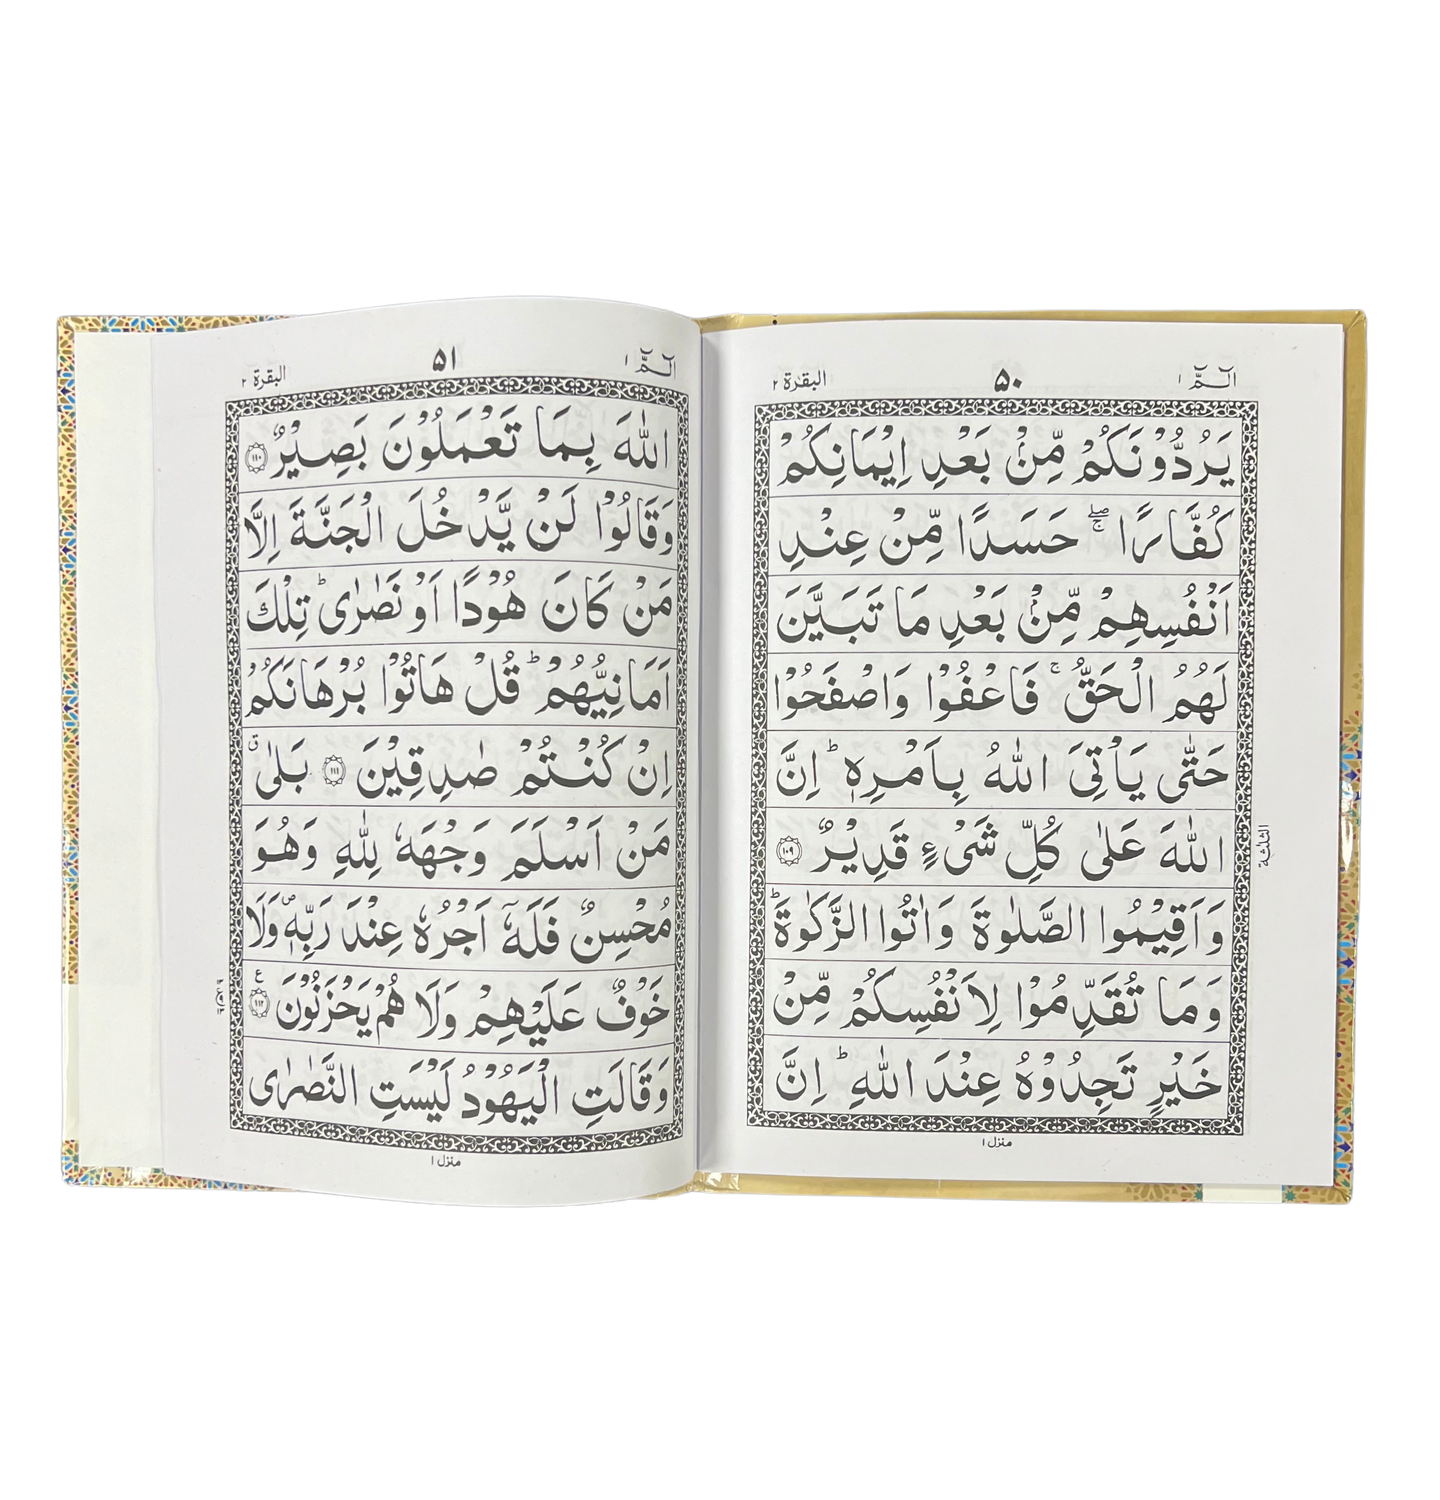 الٓمّٓ ١
۵۰
البقرة ٢
يَرُدُّوْنَكُمْ مِّنْۢ بَعْدِ اِيْمَانِكُمْ
كُفَّارًا ۖۚ حَسَدًا مِّنْ عِنْدِ
اَنْفُسِهِمْ مِّنْۢ بَعْدِ مَا تَبَيَّنَ
لَهُمُ الْحَقُّ ۚ فَاعْفُوْا وَاصْفَحُوْا
حَتّٰى يَاْتِىَ اللّٰهُ بِاَمْرِهٖ ؕ اِنَّ
اللّٰهَ عَلٰى كُلِّ شَىْءٍ قَدِيْرٌ ۝١٠٩
وَاَقِيْمُوا الصَّلٰوةَ وَاٰتُوا الزَّكٰوةَ ؕ
وَمَا تُقَدِّمُوْا لِاَنْفُسِكُمْ مِّنْ
خَيْرٍ تَجِدُوْهُ عِنْدَ اللّٰهِ ؕ اِنَّ
الثلٰثة
منزل ١
الٓمّٓ ١
۵١
البقرة ٢
اللّٰهَ بِمَا تَعْمَلُوْنَ بَصِيْرٌ ۝١١٠
وَقَالُوْا لَنْ يَّدْخُلَ الْجَنَّةَ اِلَّا
مَنْ كَانَ هُوْدًا اَوْ نَصٰرٰى ؕ تِلْكَ
اَمَانِيُّهُمْ ؕ قُلْ هَاتُوْا بُرْهَانَكُمْ
اِنْ كُنْتُمْ صٰدِقِيْنَ ۝١١١ بَلٰى ۚ
مَنْ اَسْلَمَ وَجْهَهٗ لِلّٰهِ وَهُوَ
مُحْسِنٌ فَلَهٗۤ اَجْرُهٗ عِنْدَ رَبِّهٖ ۪ وَلَا
خَوْفٌ عَلَيْهِمْ وَلَا هُمْ يَحْزَنُوْنَ ۝١١٢ ع
وَقَالَتِ الْيَهُوْدُ لَيْسَتِ النَّصٰرٰى
منزل ١